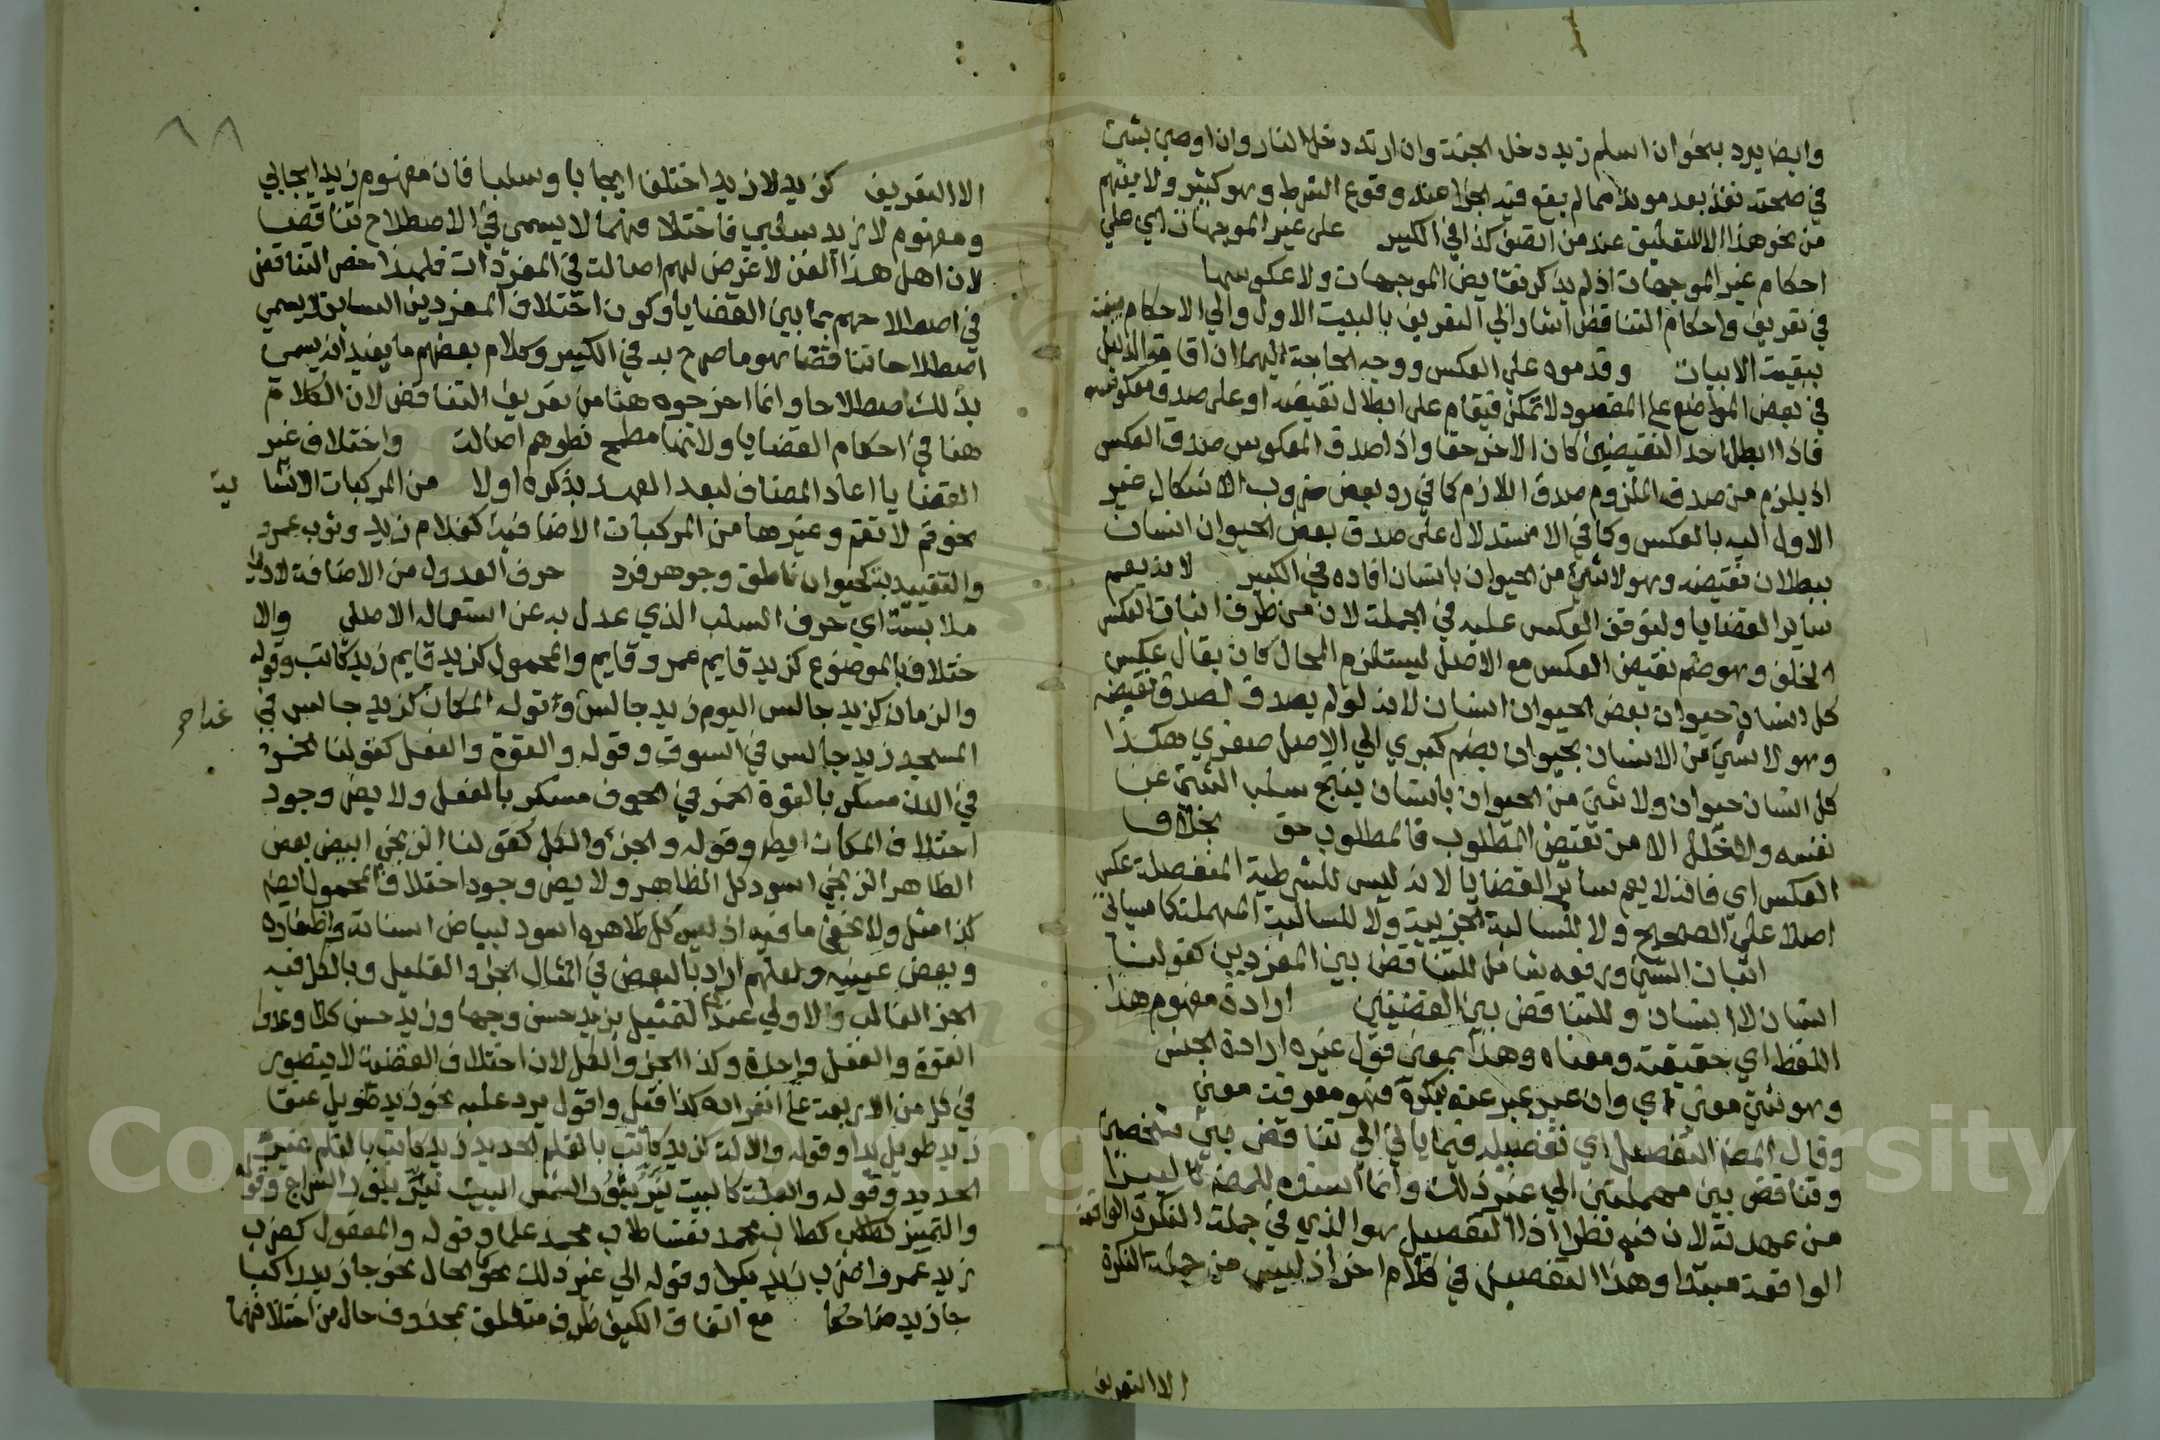 وايضا يرد بنحو ان اسلم زيد دخل الجنة وان ارتد دخل النار وان اوصي بشئ
في صحته نفذ بعد موته مما لم يقع فيه الجزا عند وقوع الشرط وهو كثير ولا يفهم
من نحو هذا الا التعليق عند من انصف كذا في الكبير على غير الموجهات اي علي
احكام غير الموجهات اذ لم يذكر نقايض الموجهات ولا عكوسها
في تعريف واحكام التناقض اشار الي التعريف بالبيت الاول والي الاحكام
ببقية الابيات وقدموه علي العكس ووجه الحاجة اليهما ان اقامة الدليل
في بعض المواضع علي المقصود لا تمكن فيقام على ابطال نقيضه او على صدق معكوسه
فاذا ابطل احد النقيضين كان الاخر حقا واذا صدق المعكوس صدق العكس
اذ يلزم من صدق الملزوم صدق اللازم كما في رد بعض ضروب الاشكال غير
الاول اليه بالعكس وكما في الاستدلال على صدق بعض الحيوان انسان
ببطلان نقيضه وهو لا شئ من الحيوان بانسان افاده في الكبير لانه يعم
ساير القضايا ولتوقف العكس عليه في الجملة لان من طرق اثبات العكس
الخلف وهو ضم نقيض العكس مع الاصل ليستلزم المحال كان يقال عكس
كل انسان حيوان بعض الحيوان انسان لانه لو لم يصدق لصدق نقيضه
وهو لا شئ من الانسان بحيوان بضم كبري الي الاصل صغري هكذا
كل انسان حيوان ولا شئ من الحيوان بانسان ينتج سلب الشئ عن
نفسه والخلل الا من نقيض المطلوب فالمطلوب حق بخلاف
العكس اي فانه لا يعم ساير القضايا لانه ليس للشرطية المنفصلة عكس
اصلا علي الصحيح ولا للسالبة الجزيية ولا للسالبة المهملة كما سياتي
اثبات الشئ ورفعه شامل للتناقض بين المفردين كقولنا
انسان لا انسان وللتناقض بين القضيتين ارادة مفهوم هذا
اللفظ اي حقيقته ومعناه وهذا بمعني قول غيره ارادة الجنس
وهو شئ معين اي وان عبر عنه بنكرة فهو معرفة معني
وقال المصنف التفصيل اي تفصيله فيما ياتي الي تناقض بين شخصين
وتناقض بين مهملتين الي غير ذلك وانما اسنده للمصنف
من عهدته لان فيه نظرا اذ التفصيل هو الذي في جملة النكرة الواقعة
الواقعة مبتدا وهذا التفصيل في كلام اخر اذ ليس من جملة النكرة
الا التعريف
٨٨
الا التعريف كزيد لا زيد اختلفا ايجابا وسلبا فان مفهوم زيد ايجابي
ومفهوم لا زيد سلبي فاختلافهما لا يسمى في الاصطلاح تناقضا
لان اهل هذا الفن لا غرض لهم اصالة في المفردات فلهذا خص التناقض
في اصطلاحهم بما بين القضايا وكون اختلاف المفردين السابق لا يسمي
اصطلاحا تناقضا هو ما صرح به في الكبير وكلام بعضهم ما يفيد انه يسمي
بذلك اصطلاحا وانما اخرجوه هنا من تعريف التناقض لان الكلام
هنا في احكام القضايا ولانها مطمح نظرهم اصالة واختلاف غير
القضايا اعاد المضاف لبعد العهد بذكره اولا من المركبات الانشا
ئية
نحو قم لا تقم وغيرها من المركبات الاضافية كغلام زيد وثوب عمرو
والتقييدية كحيوان ناطق وجوهر فرد حرف العدول من الاضافة لادنى
ملابسة اي حرف السلب الذي عدل به عن استعماله الاصلي والا
ختلاف بالموضوع كزيد قايم عمرو قايم والمحمول كزيد قايم زيد كاتب وقوله
والزمان كزيد جالس اليوم زيد جالس وقوله المكان كزيد جالس في
غدا صح
المسجد زيد جالس في السوق وقوله والقوة والفعل كقولنا الخمر
في الدن مسكر بالقوة الخمر في الجوف مسكر بالفعل ولا يضر وجود
اختلاف المكان ايضا وقوله والجزء والكل كقولنا الزنجي ابيض بعض
الظاهر الزنجي اسود كل الظاهر ولا يضر وجود اختلاف المحمول ايضا
كذا مثل ولا يخفى ما فيه اذ ليس كل ظاهره اسود لبياض اسنانه واظفاره
وبعض عينيه ولعلهم اراد بالبعض في المثال الجزء القليل وبالكل فيه
الجزء الغالب والاولي عندي التمثيل بزيد حسن وجها وزيد حسن كلا وعدوا
القوة والفعل واحدة وكذا الجزء والكل لان اختلاف القضية لا يتصور
في كل من الاربعة على انفراده كذا قيل واقول يرد عليه نحو زيد طويل عنقا
زيد طويل يدا وقوله والالة كزيد كاتب بالقلم الحديد زيد كاتب بالقلم غير
الحديد وقوله والعلة كالبيت نير بنور الشمس البيت نير بنور السراج وقوله
والتمييز كطاب محمد نفسا طاب محمد علما وقوله والمفعول كضرب
زيد عمرا ضرب زيد بكرا وقوله الي غير ذلك نحو الحال نحو جا زيد راكبا
جا زيد ضاحكا مع اتفاق الكيف ظرف متعلق بمحذوف حال من اختلافهما